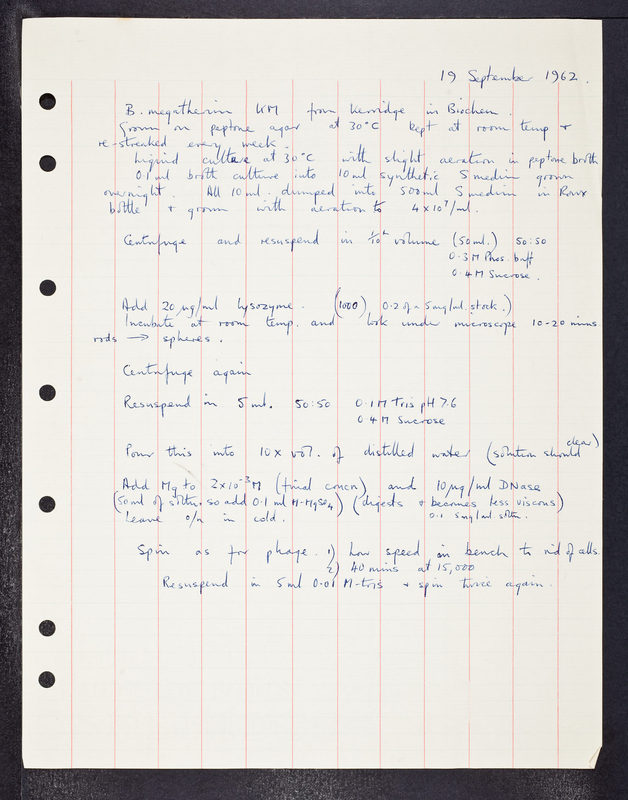 19 September 1962.
B. megatherium KM from Kerridge in Biochem.
Grown on peptone agar at 30°C kept at room temp +
re-streaked every week.
Liquid culture at 30°C with slight aeration in peptone broth
0.1 ml broth culture into 10 ml synthetic S medium grown
overnight. All 10 ml. dumped into 500 ml S medium in Roux
bottle + grown with aeration to 4 x 10⁷/ml.
Centrifuge and resuspend in 1/10th volume (50 ml.) 50:50
0.3 M Phos. buff
0.4 M Sucrose.
Add 20 µg/ml lysozyme. (1000) 0.2 of a 5mg/ml. stock.)
Incubate at room temp. and look under microscope 10-20 mins
rods → spheres.
Centrifuge again
Resuspend in 5 ml. 50:50 0.1 M Tris pH 7.6
0.4 M Sucrose
Pour this into 10 x vol. of distilled water (solution should clear)
Add Mg to 2x10⁻³M (final concn) and 10 µg/ml DNase
(50 ml of soltn. so add 0.1 ml M-MgSO₄) (digests + becomes less viscous)
Leave o/n in cold. 0.1 5mg/ml. soltn.
Spin as for phage. 1) low speed in bench to rid of cells.
2) 40 mins at 15,000
Resuspend in 5 ml 0.01 M-tris + spin twice again.